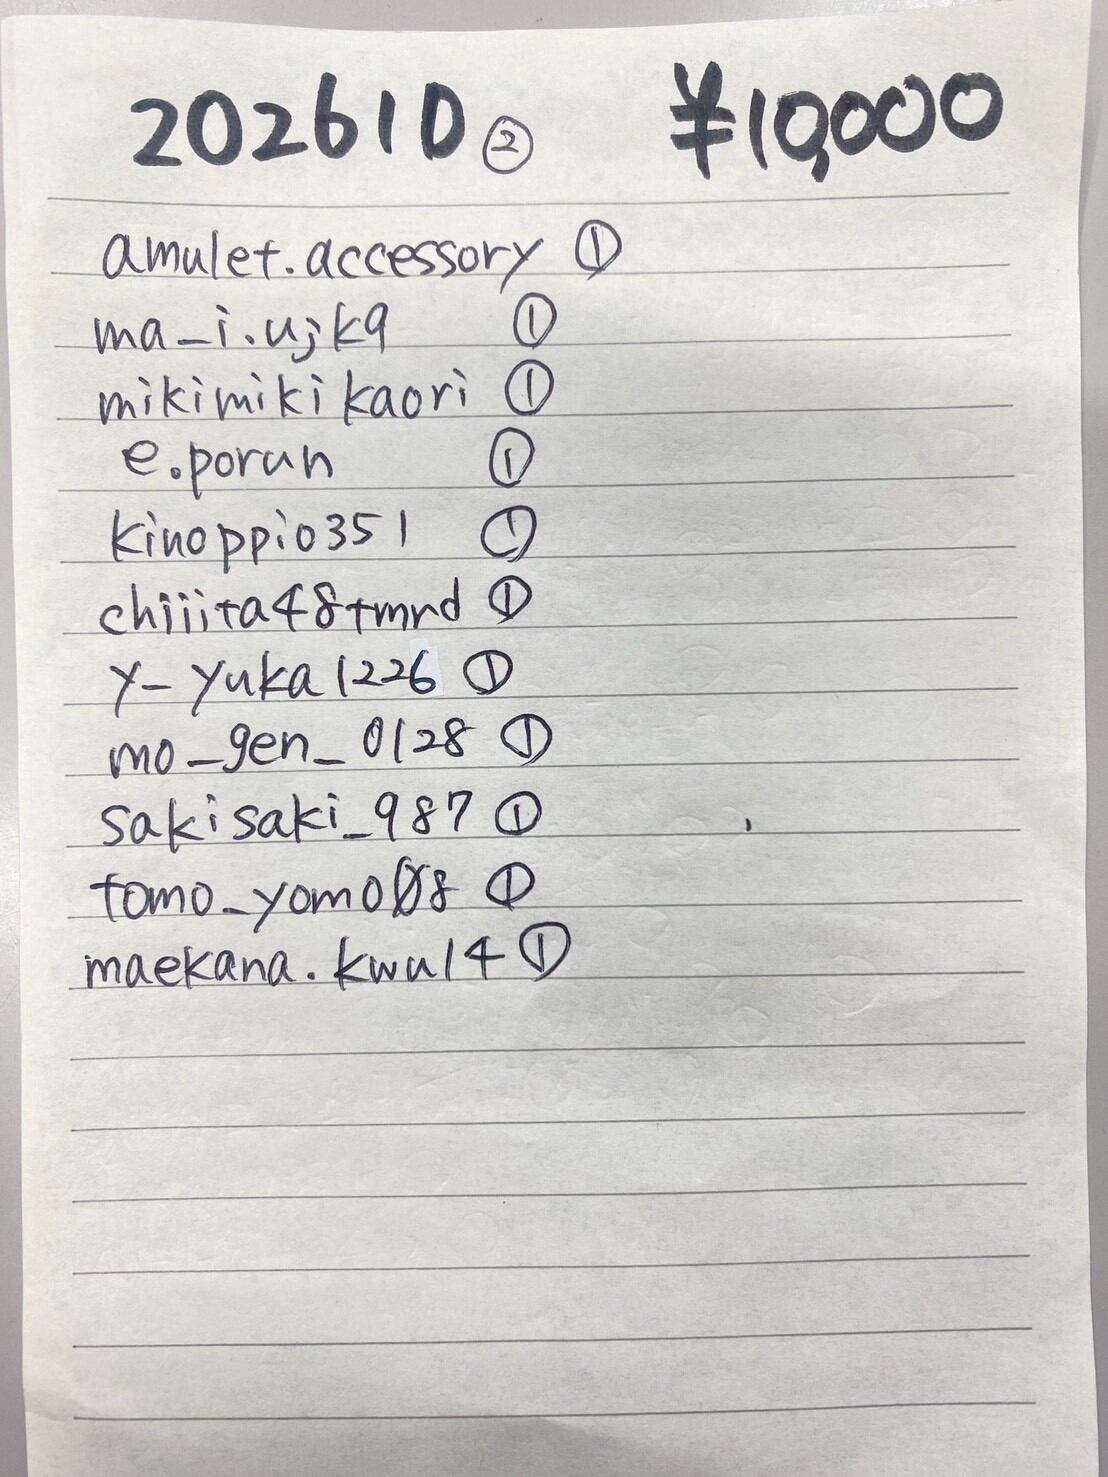 20261D ② ¥10,000
amulet.accessory ①
ma_i.ujk9 ①
mikimikikaori ①
e.porun ①
kinoppio351 ①
chiiita48tmrd ①
y_yuka1226 ①
mo_gen_0128 ①
sakisaki_987 ①
tomo_yomo08 ①
maekana.kwu14 ①